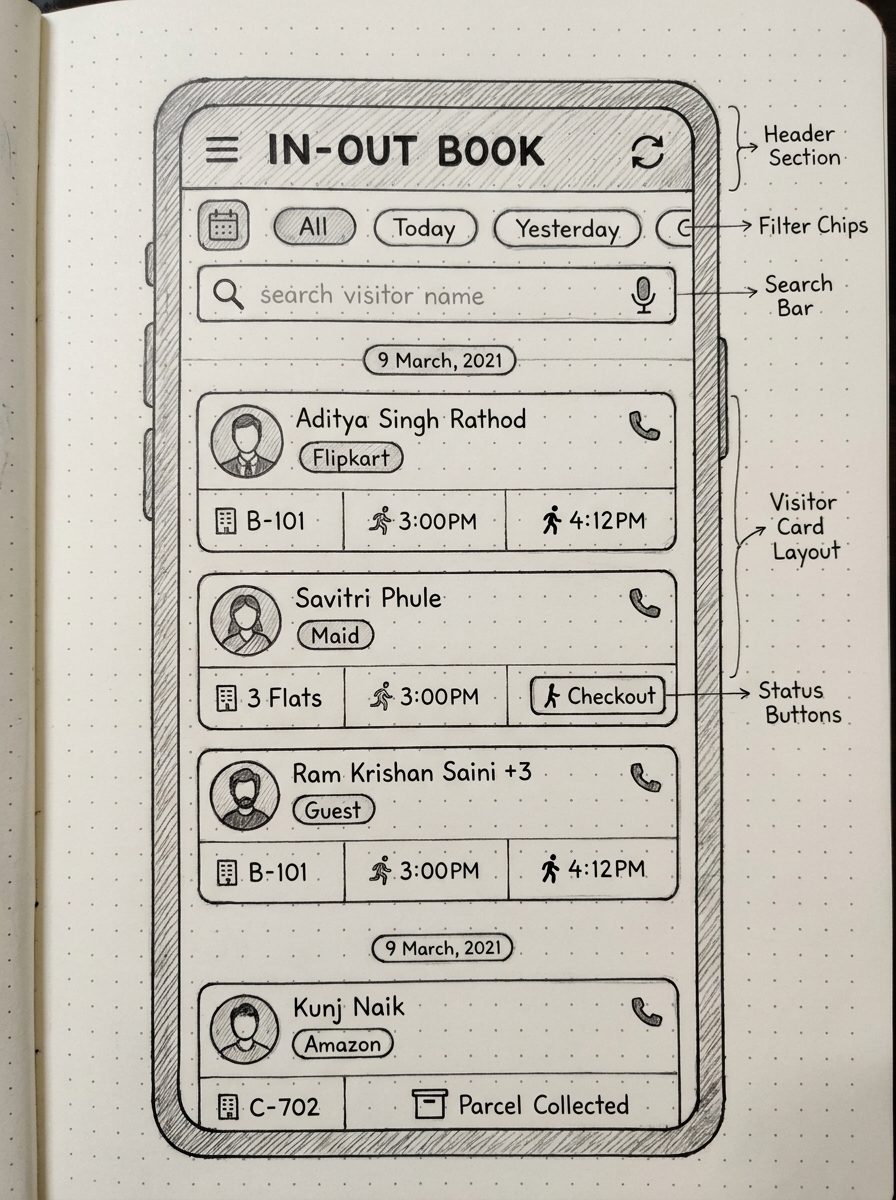 IN-OUT BOOK
Header
Section
All
Today
Yesterday
Filter Chips
search visitor name
Search
Bar
9 March, 2021
Aditya Singh Rathod
Flipkart
B-101
3:00PM
4:12PM
Visitor
Card
Layout
Savitri Phule
Maid
3 Flats
3:00PM
Checkout
Status
Buttons
Ram Krishan Saini +3
Guest
B-101
3:00PM
4:12PM
9 March, 2021
Kunj Naik
Amazon
C-702
Parcel Collected